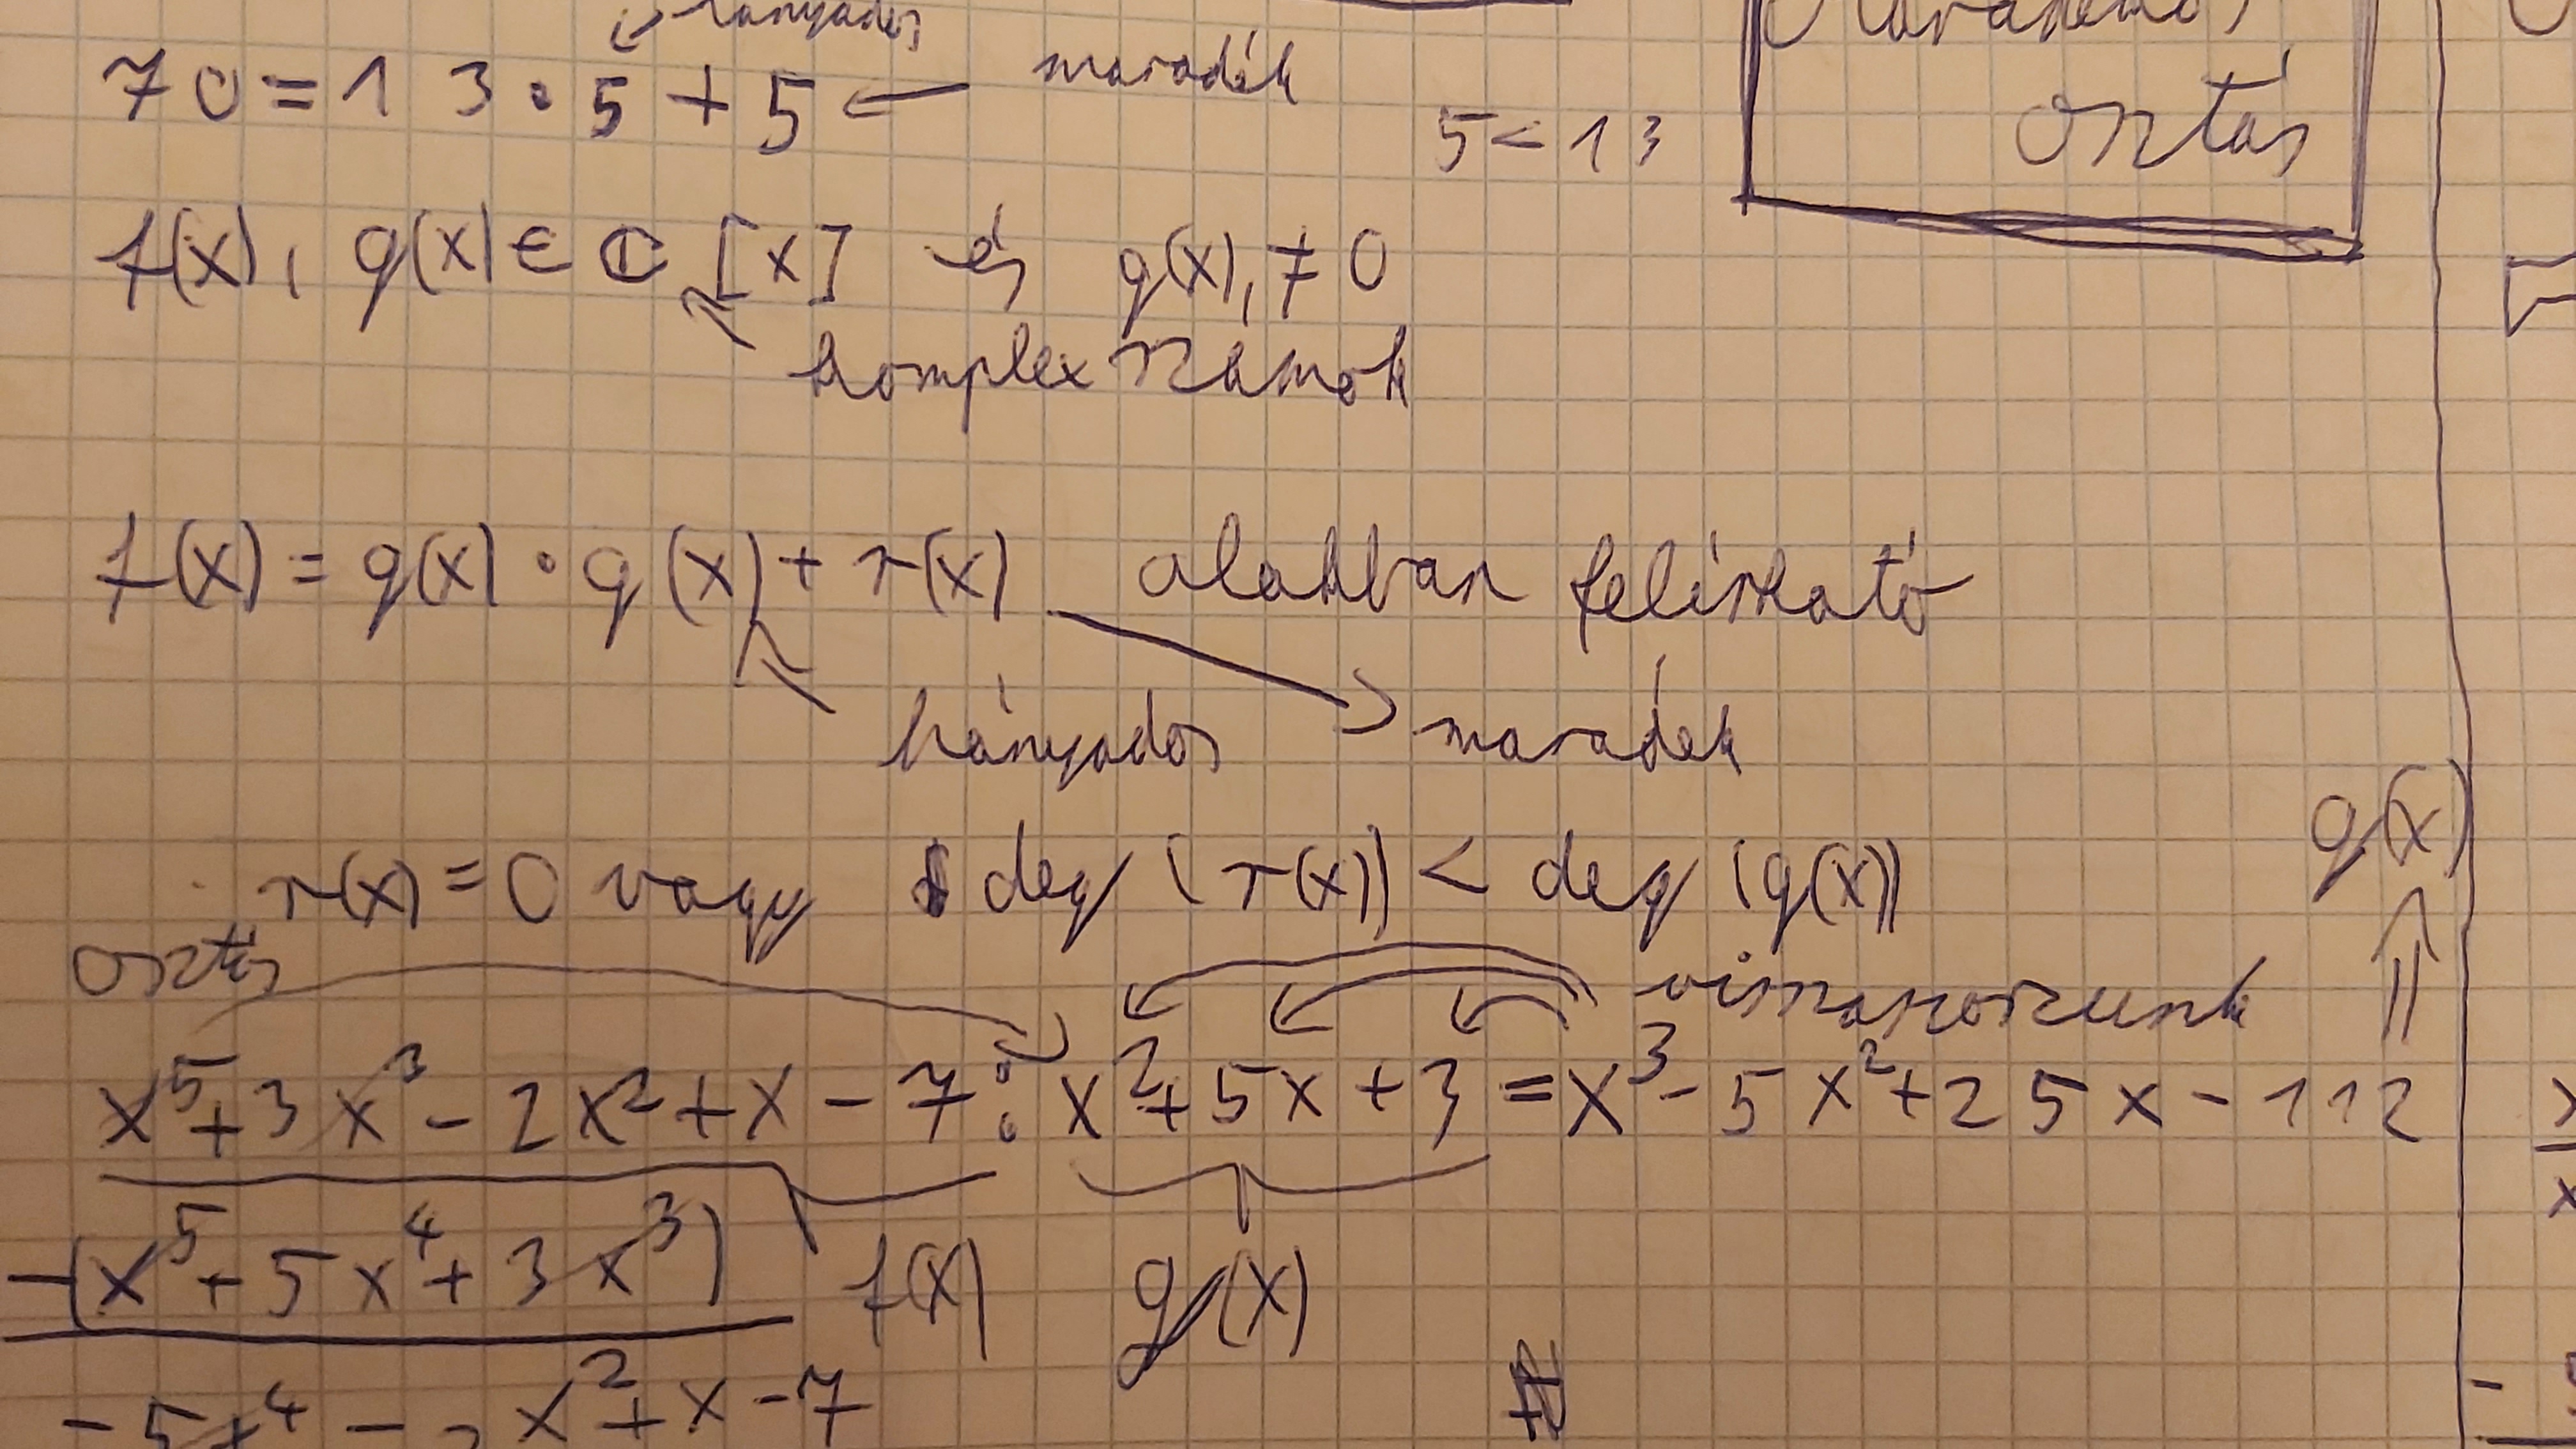 hányados
70 = 13 · 5 + 5 ← maradék
5 < 13
osztás
f(x), g(x) ∈ ℂ [x] és g(x) ≠ 0
komplex számok
f(x) = g(x) · q(x) + r(x) alakban felírható
hányados maradék
r(x) = 0 vagy deg (r(x)) < deg (g(x))
q(x)
osztás visszaszorzunk
x⁵ + 3x³ - 2x² + x - 7 : x² + 5x + 3 = x³ - 5x² + 25x - 112
-(x⁵ + 5x⁴ + 3x³) f(x) g(x)
- 5x⁴ - 2x² + x - 7